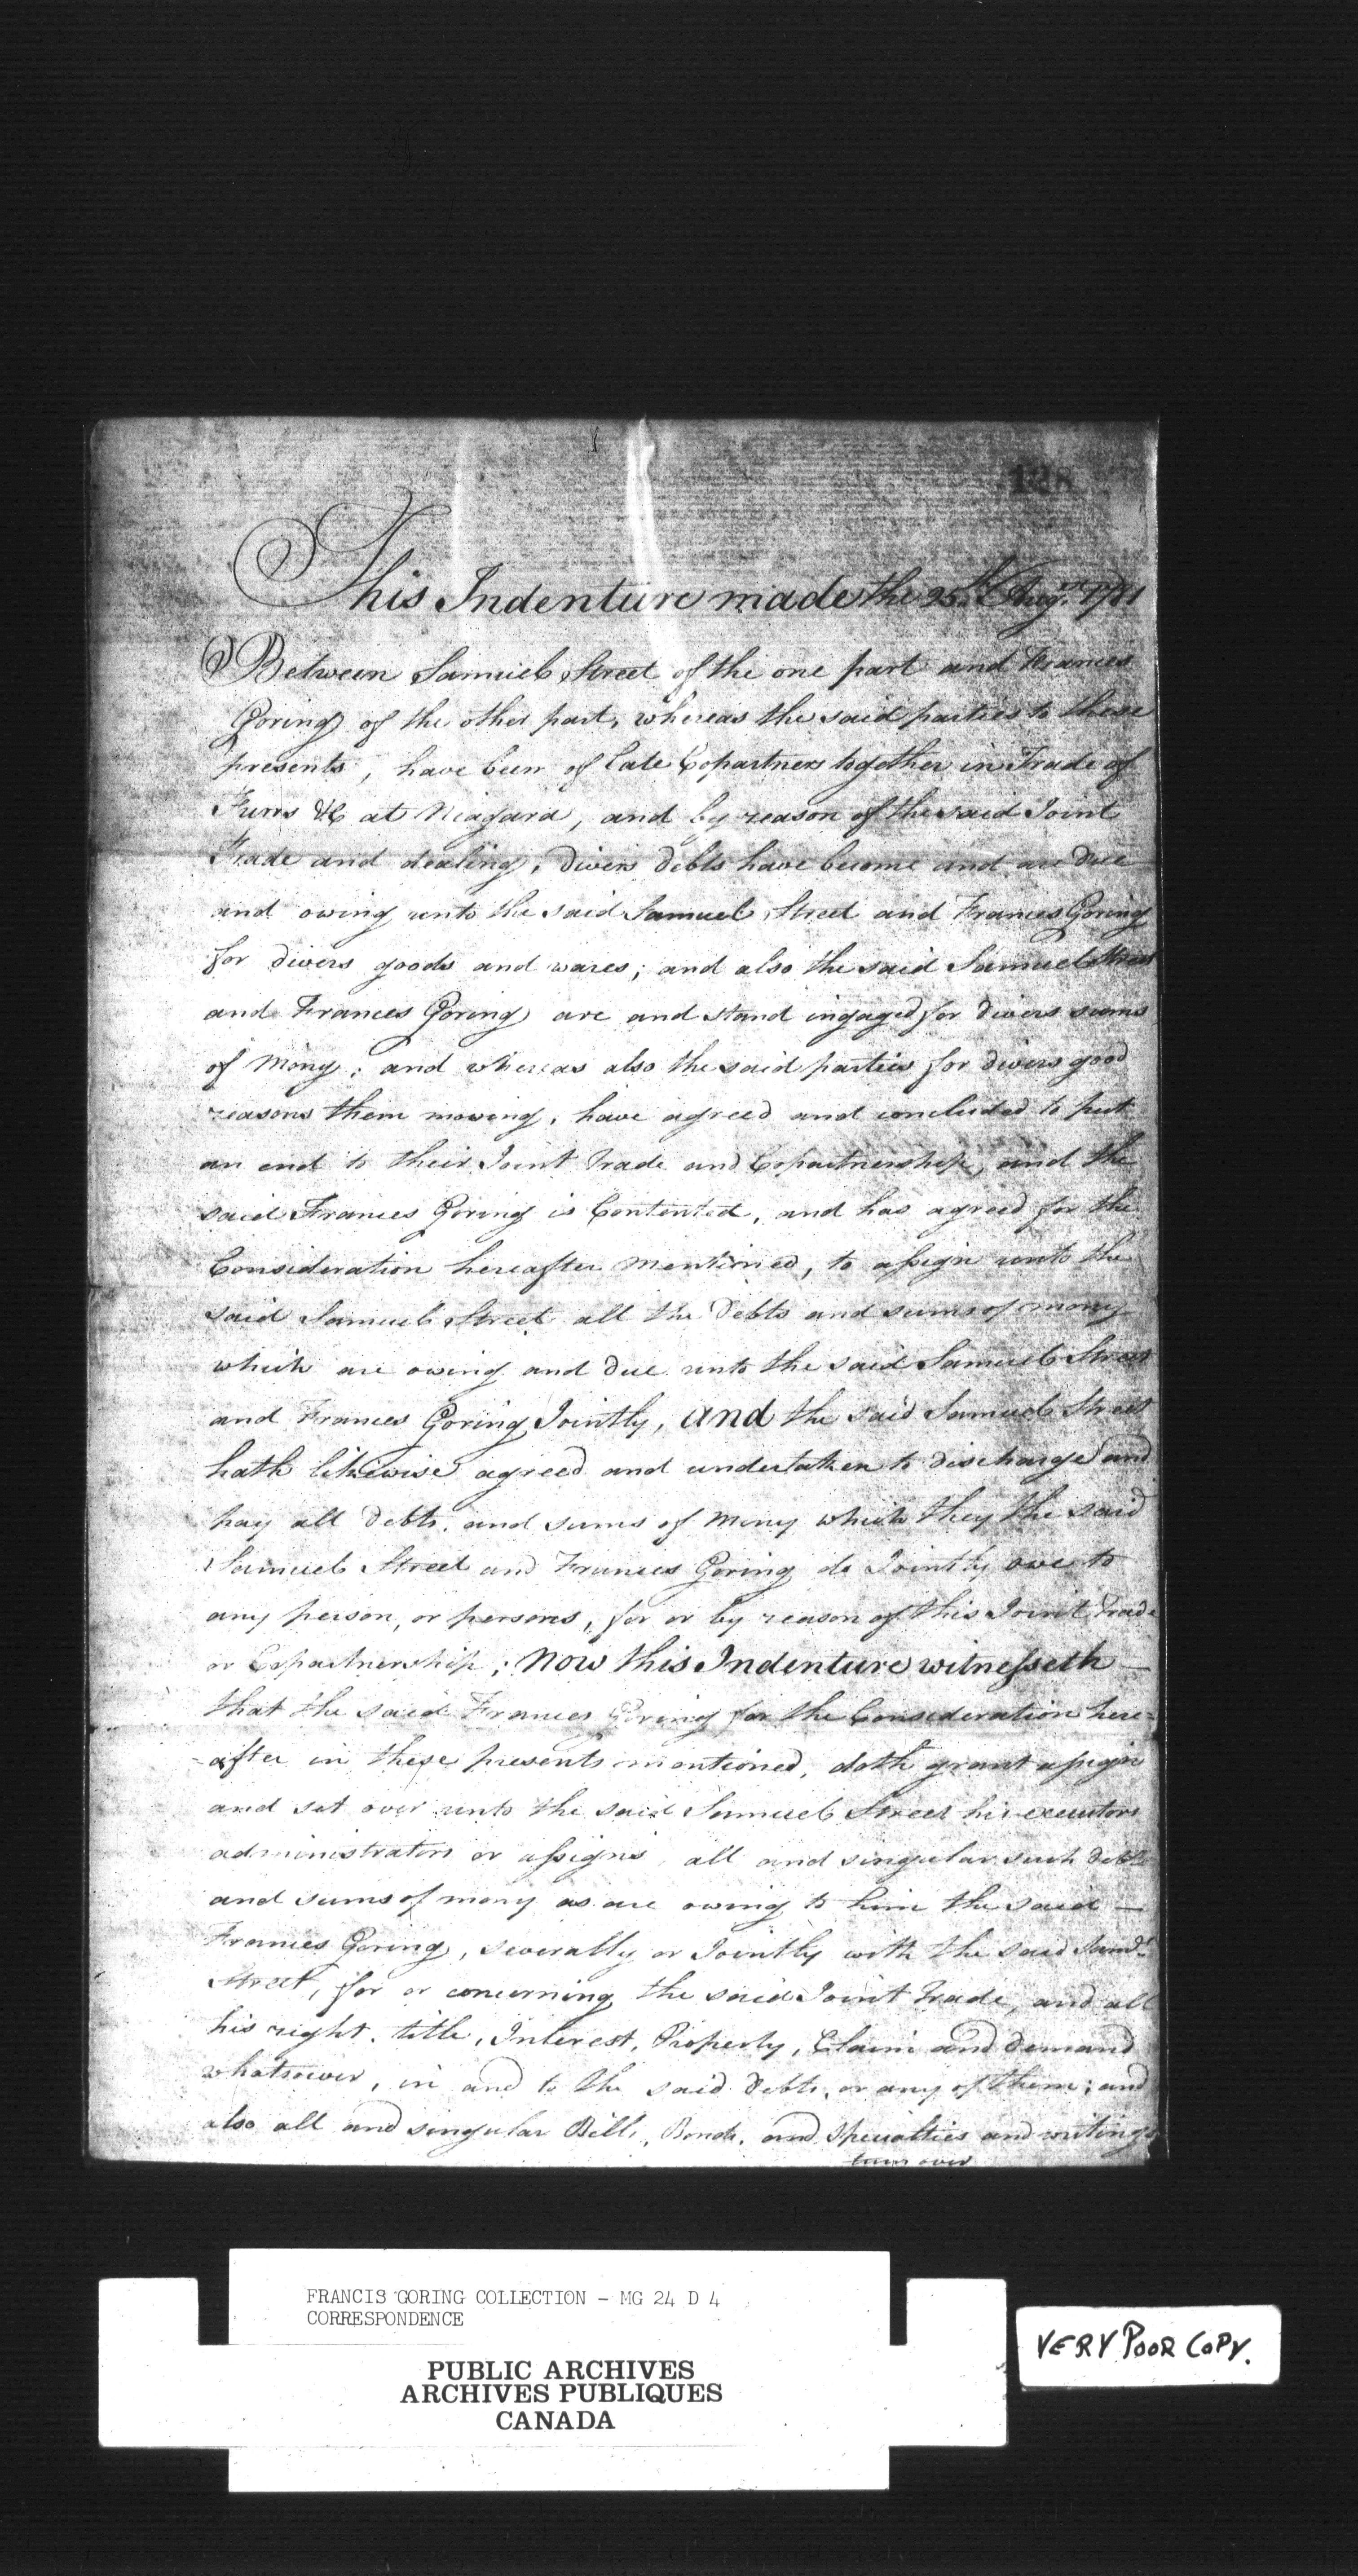 128
This Indenture made the 25th Augst 1781
Between Samuel Street of the one part and Frances
Goring of the other part, whereas the said parties to these
presents, have been of late Copartners together in Trade of
Furrs &C at Niagara, and by reason of the said Joint
Trade and dealing, divers debts have become and are due
and owing unto the said Samuel Street and Frances Goring
for divers goods and wares; and also the said Samuel Street
and Frances Goring are and stand ingaged for divers sums
of Mony; and whereas also the said parties for divers good
reasons them moving, have agreed and concluded to put
an end to their Joint Trade and Copartnership, and the
said Frances Goring is Contented, and has agreed for the
Consideration hereafter mentioned, to assign unto the
said Samuel Street all the Debts and sums of mony
which are owing and due unto the said Samuel Street
and Frances Goring Jointly, and the said Samuel Street
hath likewise agreed and undertaken to discharge and
pay all debts, and sums of Mony which they the said
Samuel Street and Frances Goring do Jointly owe to
any person, or persons, for or by reason of this Joint Trade
or Copartnership; Now this Indenture witnesseth —
that the said Frances Goring for the Consideration here=
=after in these presents mentioned, doth grant assign
and set over unto the said Samuel Street his executors
administrators or assigns, all and singular such debts
and sums of mony as are owing to him the said —
Frances Goring, severally or Jointly with the said Saml
Street, for or concerning the said Joint Trade, and all
his right, title, Interest, Property, Claim and demand
whatsoever, in and to the said debts, or any of them; and
also all and singular Bills, Bonds, and Specialties and writings
turn over
FRANCIS GORING COLLECTION - MG 24 D 4
CORRESPONDENCE
PUBLIC ARCHIVES
ARCHIVES PUBLIQUES
CANADA
VERY POOR COPY.